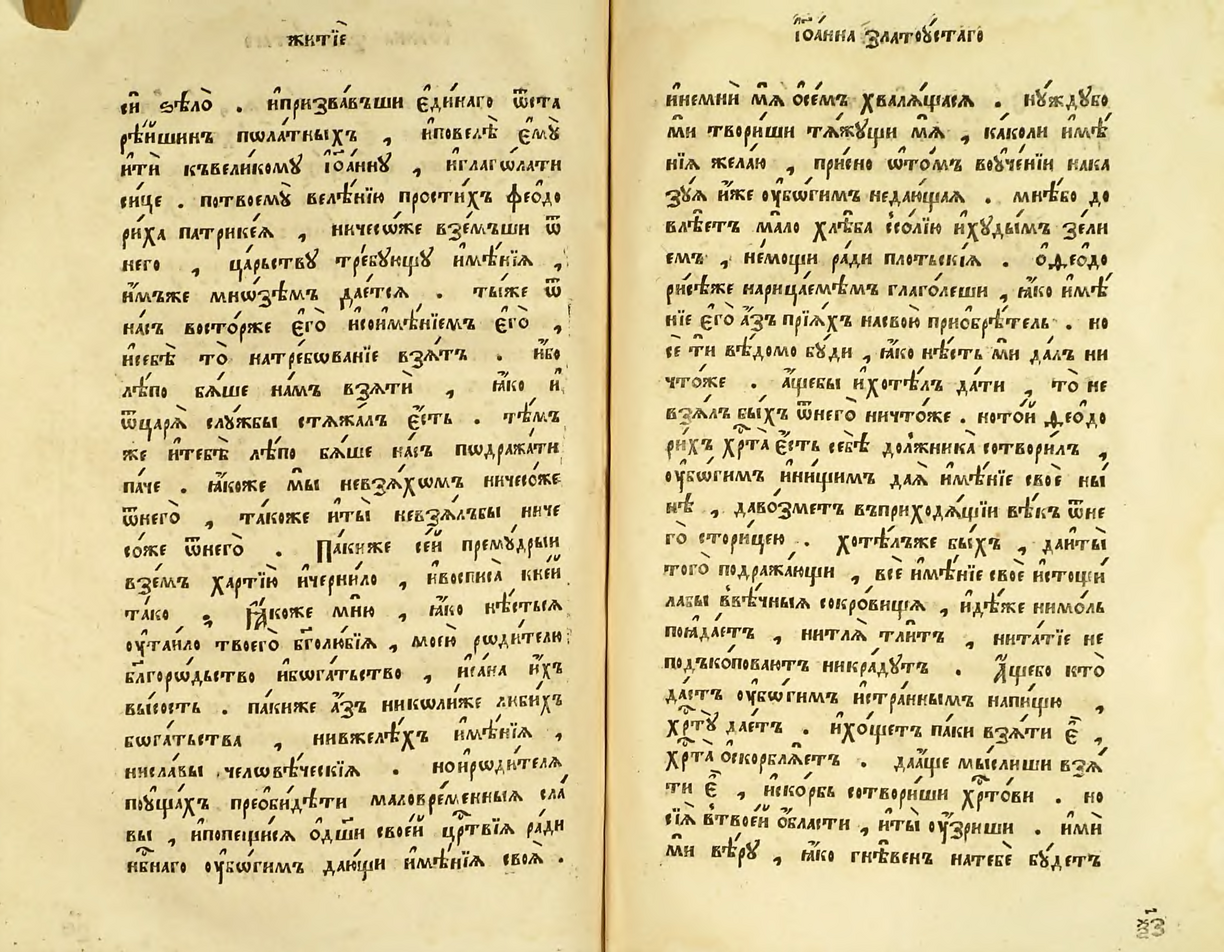 житі̀е
си̑ ѕѣло̀ . и҆призва́въши є҆ди́наго ѿста
рѣ́йшинъ пѡла́тныхъ , и҆повелѣ̀ є҆мꙋ̀
ити̑ къвели́комꙋ і҆ѡа́ннꙋ , и҆глаго́лати
си́це . потвоемꙋ̀ велѣ́нїю прости́хъ ѳео́до
ри́ха патрике́ѧ , ничесѡ́же взе́мъши ѿ
него̀ , ца́рьствꙋ тре́бꙋющꙋ и҆мѣ́нїѧ ,
и҆́мъже мнѡ́зѣмъ дае́тсѧ . ты́же ѿ
на́съ восто́рже є҆го̀ исоимѣ́нїемъ є҆го̀ ,
исебѣ̀ то̀ натре́бѡванїе взѧ́тъ . и҆́бо
лѣ́по бѧ́ше на́мъ взѧ́ти , ꙗ҆́ко и҆
ѿцарѧ̀ слꙋ́жбы стѧжа́лъ є҆́сть . тѣ́мъ
же итебѣ̀ лѣ́по бѧ́ше на́съ пѡдража́ти
па́че . ꙗ҆́коже мы̀ невзѧ́хѡмъ ничесо́же
ѿнего̀ , та́коже иты̀ невзѧ́лъбы ниче
со́же ѿнего̀ . Па́киже се́й премꙋ́дрыи
взе́мъ ха́ртїю и҆черни́ло , и҆восписа̀ кне́й
та́ко . Ꙗ҆́коже мню̀ , ꙗ҆́ко нѣ́стьсѧ
оу҆таи́ло твоего̀ бг҃олю́бїѧ , мое́ю рѡди́телю
бл҃горѡ́дьство и҆бѡга́тьство , иса́на и҆́хъ
высость . па́киже а҆́зъ никѡли́же люби́хъ
бѡга́тьства , нивжелѣ́хъ имѣ́нїѧ ,
нисла́вы человѣ́ческїѧ . нои҆рѡди́телѧ
поꙋща́хъ преѡби́дѣти маловре́менныѧ сла́
вы , и҆попещи́сѧ ѡ҆дш҃и свое́й црт҃вїѧ ра́ди
нбн҃аго оу҆бѡ́гимъ даю́щи и҆мѣ́нїѧ своѧ̀ .
і҆ѡа́нна златоꙋ́стаго
и҆немни̑ мѧ̀ ѡ҆се́мъ хвалѧ́щасѧ . нꙋ́ждꙋбо
ми̑ твори́ши тѧ́жꙋщи мѧ̀ , ка́коли и҆мѣ́
нїѧ жела́ю , при́сно ѡ҆то́мъ воꙋче́нїи нака
зꙋ́ѧ и҆̀же оу҆бѡ́гимъ недаю́щаѧ . мнѣ́бо до
влѣ́етъ ма́ло хлѣ́ба ссо́лїю и҆хꙋды́мъ зе́ли
емъ , не́мощи ра́ди пло́тьскїѧ . ѡ҆ѳео́до
ри́сѣже нарица́емѣмъ глаго́леши , ꙗ҆́ко и҆мѣ́
нїе є҆го̀ а҆́зъ прїѧ́хъ насвою̀ приобрѣ́тель . но
се́ ти вѣ́домо бꙋ́ди , ꙗ҆́ко нѣ́сть ми̑ да́лъ ни
что́же . а҆́щебы и҆хотѣ́лъ да́ти , то̀ не
взѧ́лъ бы́хъ ѿнего̀ ничто́же . ното́й ѳео́до
ри́хъ хрт҃а̀ є҆́сть себѣ̀ должника̀ сотвори́лъ ,
оу҆бѡ́гимъ и҆ни́щимъ даѧ̀ и҆мѣ́нїе своѐ ны́
нѣ , даво́зметъ въприходѧ́щїи вѣ́къ ѿне
го̀ стори́цею . хотѣ́лъже бы́хъ , даи҆ты̀
того̀ подража́ющи , всѐ и҆мѣ́нїе своѐ и҆стощи́
лабы ввѣ́чныѧ сокро́вища , и҆дѣ́же нимо́ль
поѧда́етъ , нитлѧ̀ тли́тъ , нита́тїе не
подъкопова́ютъ никра́дꙋтъ . А҆́щебо кто̀
да́стъ оу҆бѡ́гимъ и҆стра́ннымъ напи́щю ,
хрт҃ꙋ̀ дае́тъ . и҆хо́щетъ па́ки взѧ́ти є҆̀ ,
хрт҃а̀ ѡ҆скорблѧ́етъ . даа҆́ще мы́слиши взѧ́
ти є҆̀ , и҆ско́рбь сотвори́ши хрт҃о́ви . но
сїѧ̀ втвое́й о҆́бласти , и҆ты̀ оу҆́зриши . и҆ми̑
ми̑ вѣ́рꙋ , ꙗ҆́ко гнѣ́венъ натебѐ бꙋ́детъ